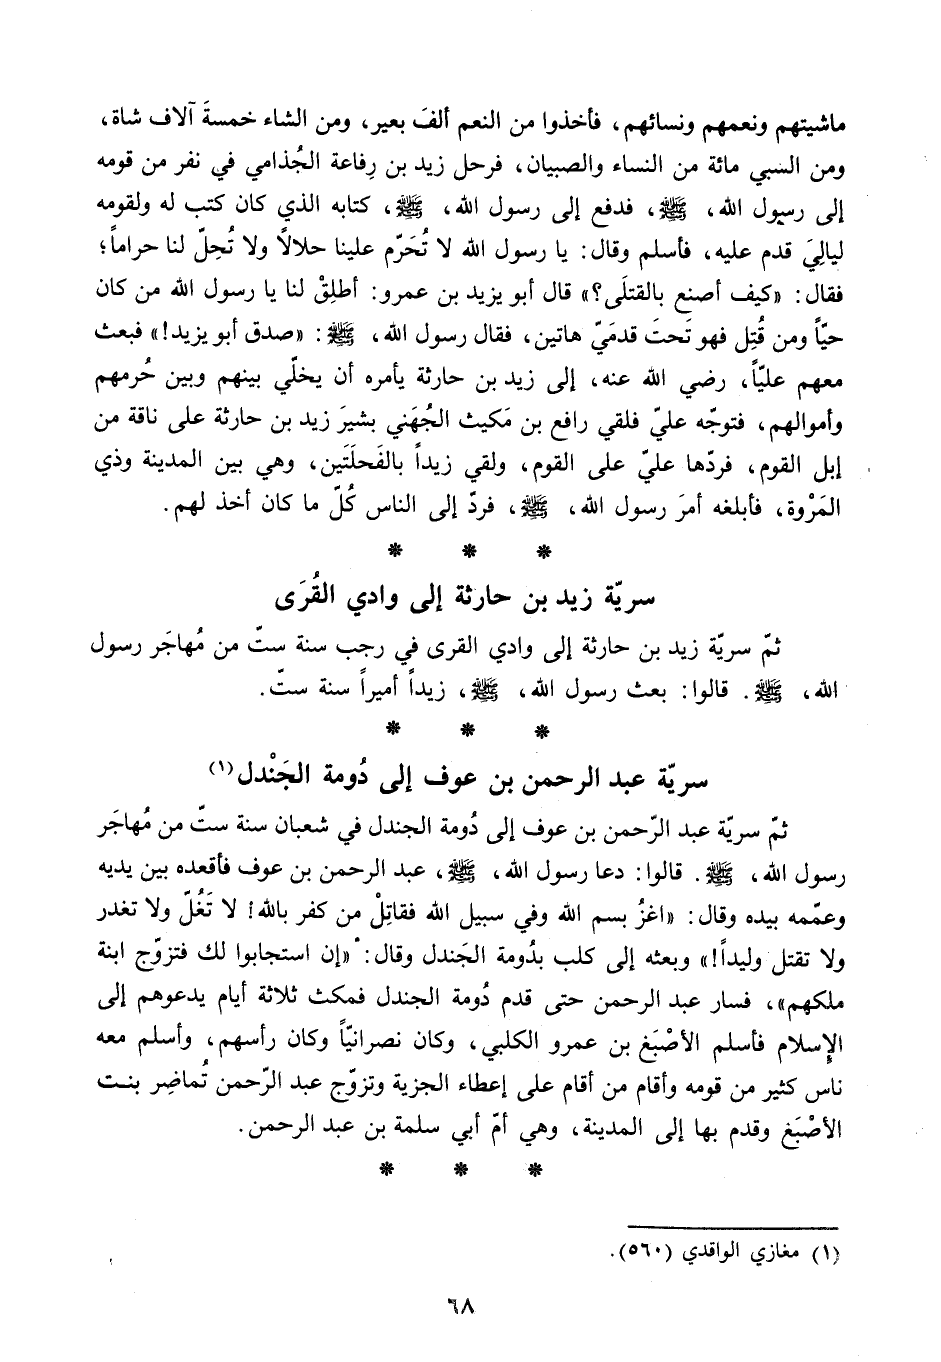 ماشيتهم ونعمهم ونسائهم، فأخذوا من النعم ألفَ بعير، ومن الشاء خمسةَ آلاف شاة،
ومن السبي مائة من النساء والصبيان، فرحل زيد بن رِفاعة الجُذامي في نفر من قومه
إلى رسول الله، ﷺ، فدفع إلى رسول الله، ﷺ، كتابه الذي كان كتب له ولقومه
لياليَ قدم عليه، فأسلم وقال: يا رسول الله لا تُحَرّم علينا حلالاً ولا تُحِلّ لنا حراماً؛
فقال: «كيف أصنع بالقتلَى؟» قال أبو يزيد بن عمرو: أطلِقْ لنا يا رسول الله من كان
حيّاً ومن قُتِل فهو تَحتَ قدمَيّ هاتين، فقال رسول الله، ﷺ: «صدق أبو يزيد!» فبعث
معهم عليّاً، رضي الله عنه، إلى زيد بن حارثة يأمره أن يخلّي بينهم وبين حُرمهم
وأموالهم، فتوجّه عليّ فلقي رافع بن مَكيث الجُهَني بشيرَ زيد بن حارثة على ناقة من
إبل القوم، فردّها عليّ على القوم، ولقي زيداً بالفَحلَتَين، وهي بين المدينة وذي
المَرْوة، فأبلغه أمرَ رسول الله، ﷺ، فردّ إلى الناس كُلّ ما كان أخذ لهم.
* * *
سريّة زيد بن حارثة إلى وادي القُرَى
ثمّ سريّة زيد بن حارثة إلى وادي القرى في رجب سنة ستّ من مُهاجَر رسول
الله، ﷺ. قالوا: بعث رسول الله، ﷺ، زيداً أميراً سنة ستّ.
* * *
سريّة عبد الرحمن بن عوف إلى دُومة الجَنْدل(١)
ثمّ سريّة عبد الرّحمن بن عوف إلى دُومة الجندل في شعبان سنة ستّ من مُهاجَر
رسول الله، ﷺ. قالوا: دعا رسول الله، ﷺ، عبد الرحمن بن عوف فأقعده بين يديه
وعمّمه بيده وقال: «اغزُ بسم الله وفي سبيل الله فقاتِلْ من كفر بالله! لا تَغُلّ ولا تغدر
ولا تقتل وليداً!» وبعثه إلى كلب بدُومة الجَندل وقال: «إن استجابوا لك فتزوّج ابنة
ملكهم»، فسار عبد الرحمن حتى قدم دُومة الجندل فمكث ثلاثة أيام يدعوهم إلى
الإسلام فأسلم الأصْبَغ بن عمرو الكلبي، وكان نصرانيّاً وكان رأسهم، وأسلم معه
ناس كثير من قومه وأقام من أقام على إعطاء الجزية وتزوّج عبد الرّحمن تُماضِر بنت
الأصْبَغ وقدم بها إلى المدينة، وهي أمّ أبي سلمة بن عبد الرحمن.
* * *
(١) مغازي الواقدي (٥٦٠).
٦٨